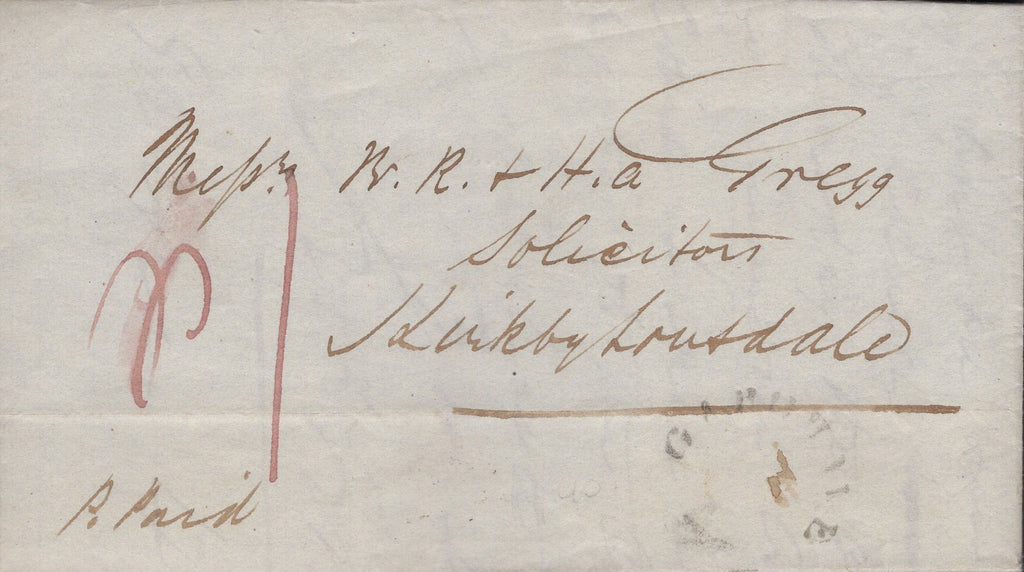 Messrs W. R. & H. A Gregg
Solicitors
Kirkby Lonsdale
P. Paid
P 1